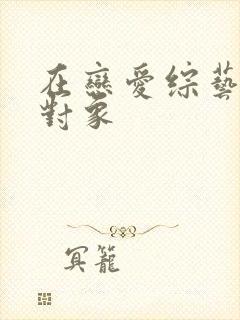 在戀愛綜藝
對象
冥籠